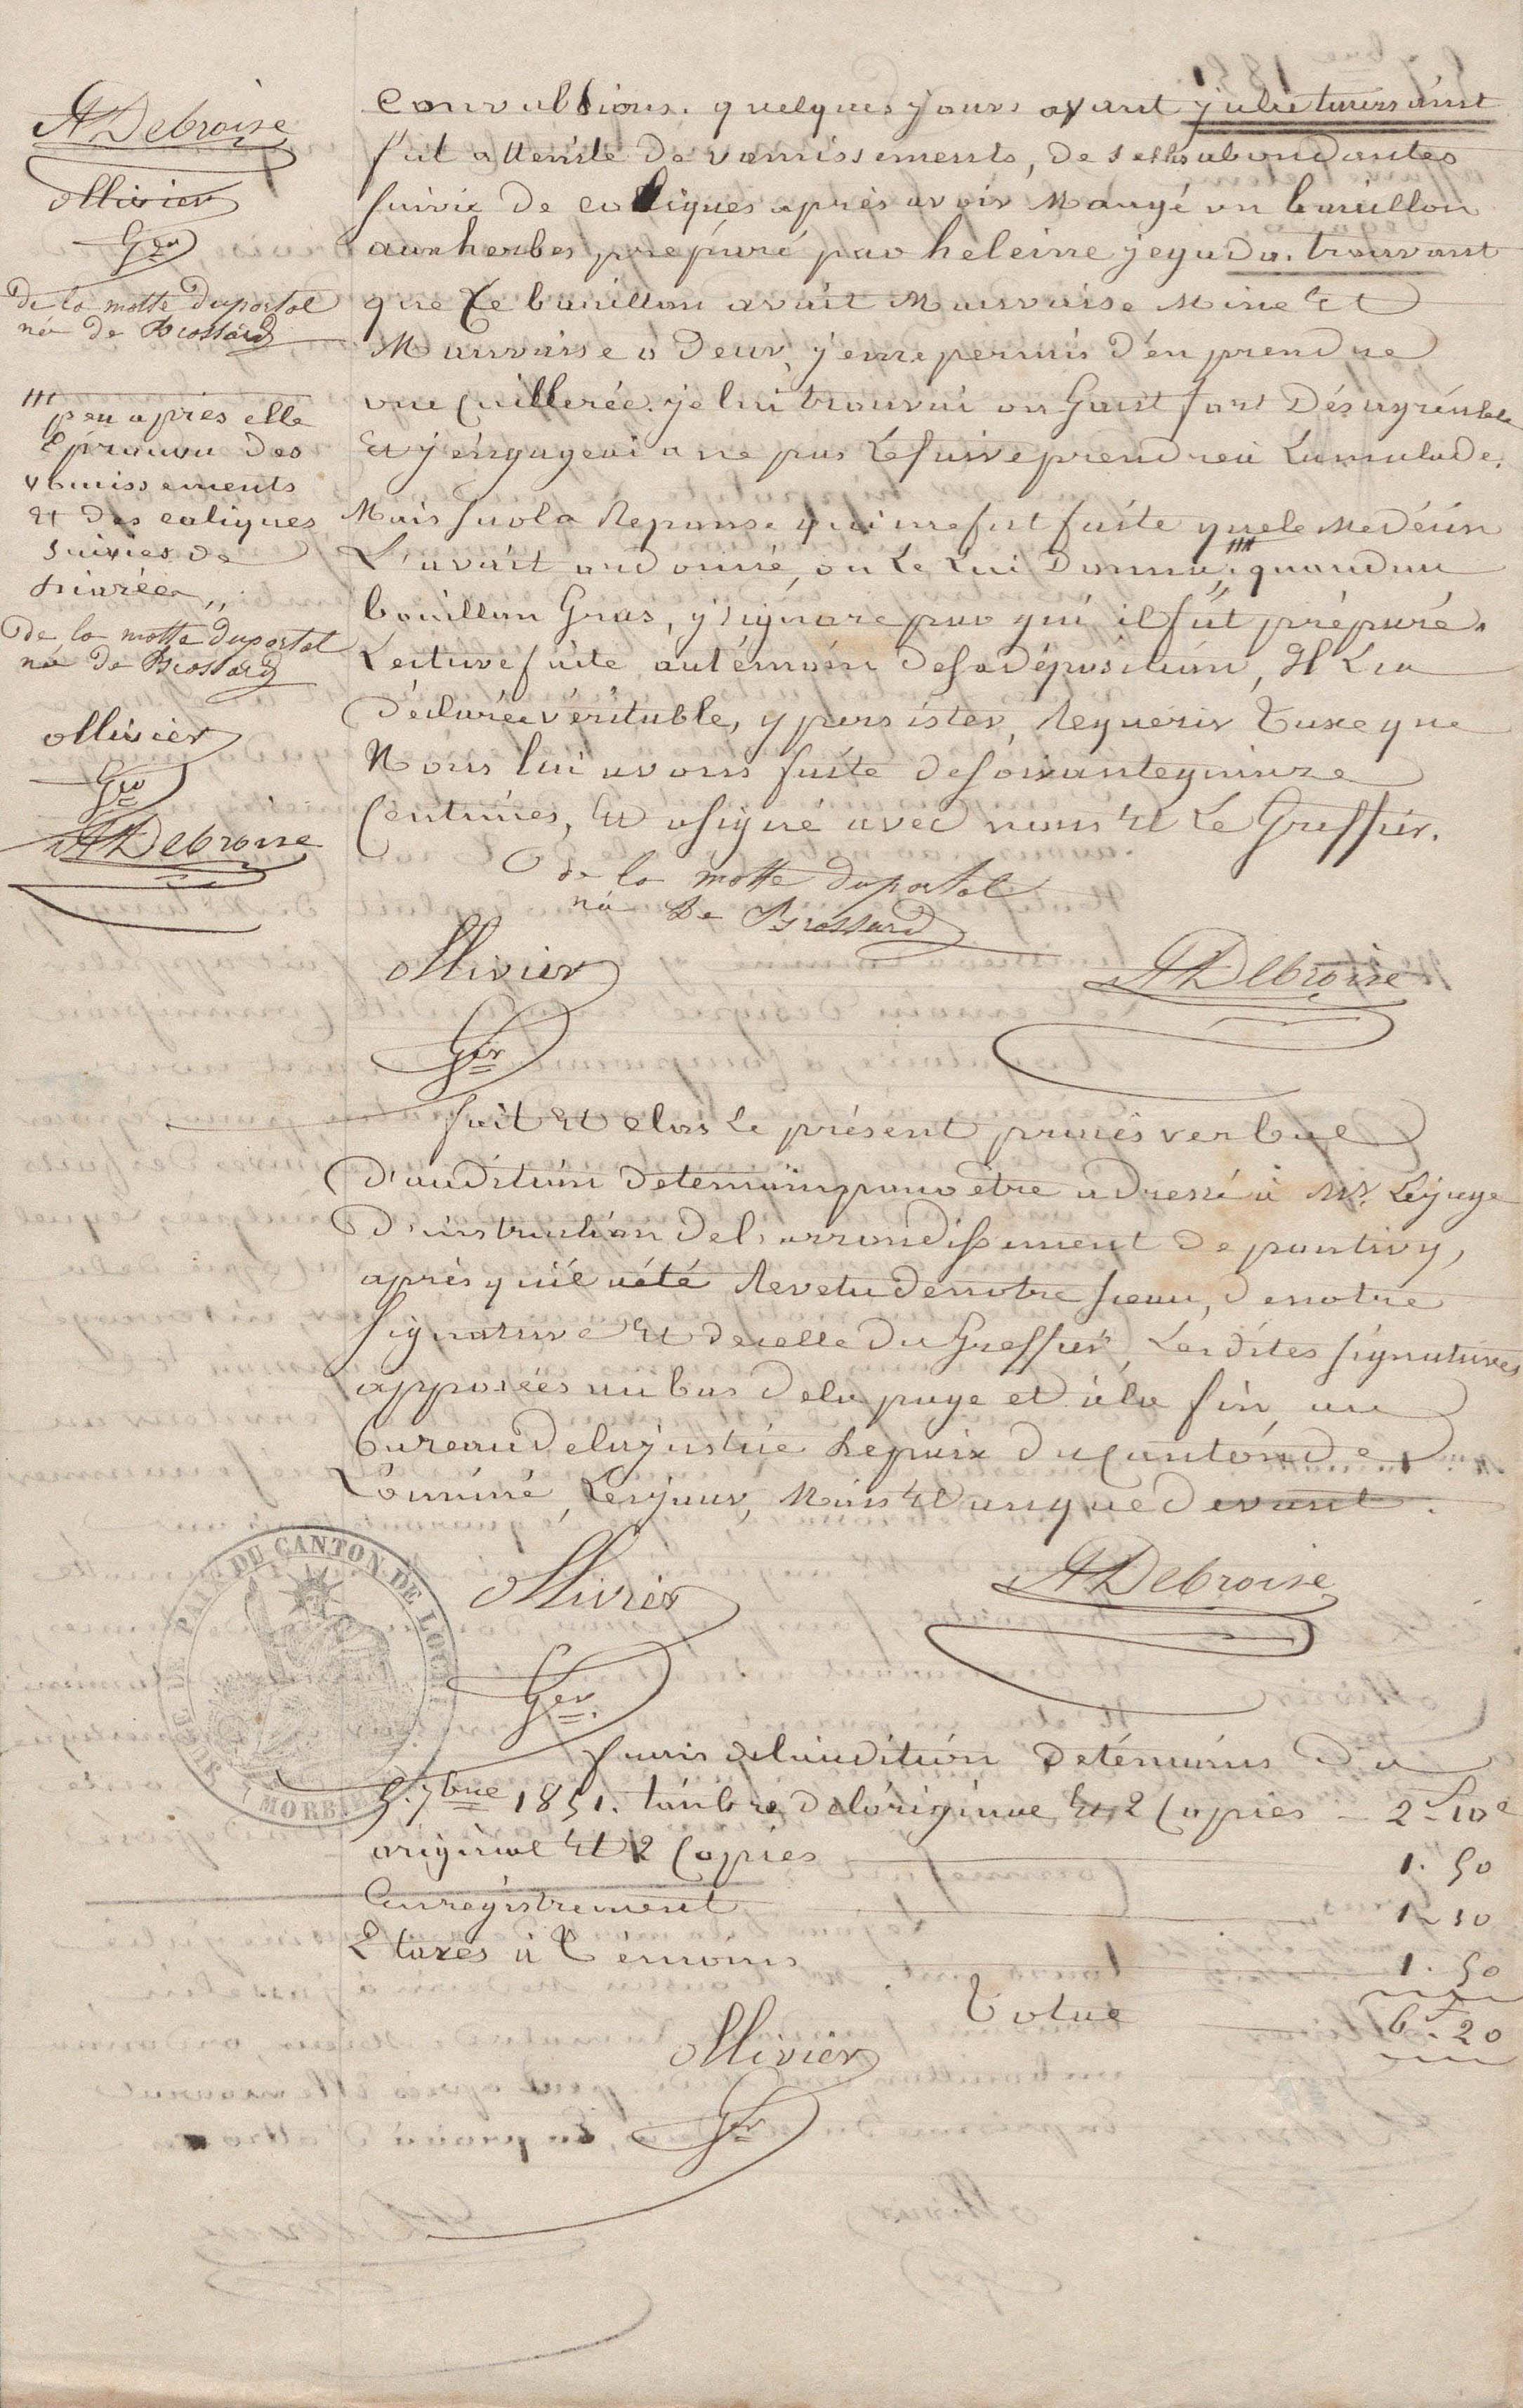 A Debroise
ollivier
Ger
de la motte duportal
née de Brossard
convulsions. quelques jours avant julie toursaint
fut atteinte de vomissements, de selles abondantes
suivie de coliques après avoir mangé un bouillon
aux herbes, préparé par heleine jegado. trouvant
que ce bouillon avait mauvaise mine et
mauvaise odeur, j'eme permis d'en prendre
une cuillerée. je lui trouvai un gout fort désagréable
et j'engageai a ne pas le faire prendre à la malade.
Mais sur la réponse qui me fut faite que le médecin
L'avait ordonné, on le lui donna, quand au
bouillon gras, j'ignore par qui il fut préparé.
Lecture faite au témoin de sa déposition, il l'a
déclarée véritable, y persister, requérir taxe que
Nous lui avons faite de soixante quinze
centimes, et a signé avec nous et le Greffier.
peu après elle
éprouva des
vomissements
et des coliques
suivies de
diarrée
de la motte duportal
née de Brossard
ollivier
Ger
A Debroise
de la motte duportal
née De Brossard
ollivier
A Debroise
Ger
fait et clos le présent procès verbal
d'audition de témoins pour être adressé à Mr. Le juge
d'instruction de l'arrondissement de pontivy,
après qu'il a été revetu de notre sceau, de notre
signature et de celle du Greffier, Les dites signatures
apposées au bas de la page et à la fin, au
bureau de la justice de paix du canton de
Locminé, Les jour, mois et an que devant.
JUSTICE DE PAIX DU CANTON DE LOCMINÉ
MORBIHAN
ollivier
A Debroise
Ger.
frais de l'audition de témoins du
5. 7bre 1851. timbre de l'original et 2 copies 2f 10c
original et 2 copies 1. 50
Enregistrement 1 10
2 taxes à témoins 1. 50
Total 6f. 20
ollivier
Ger